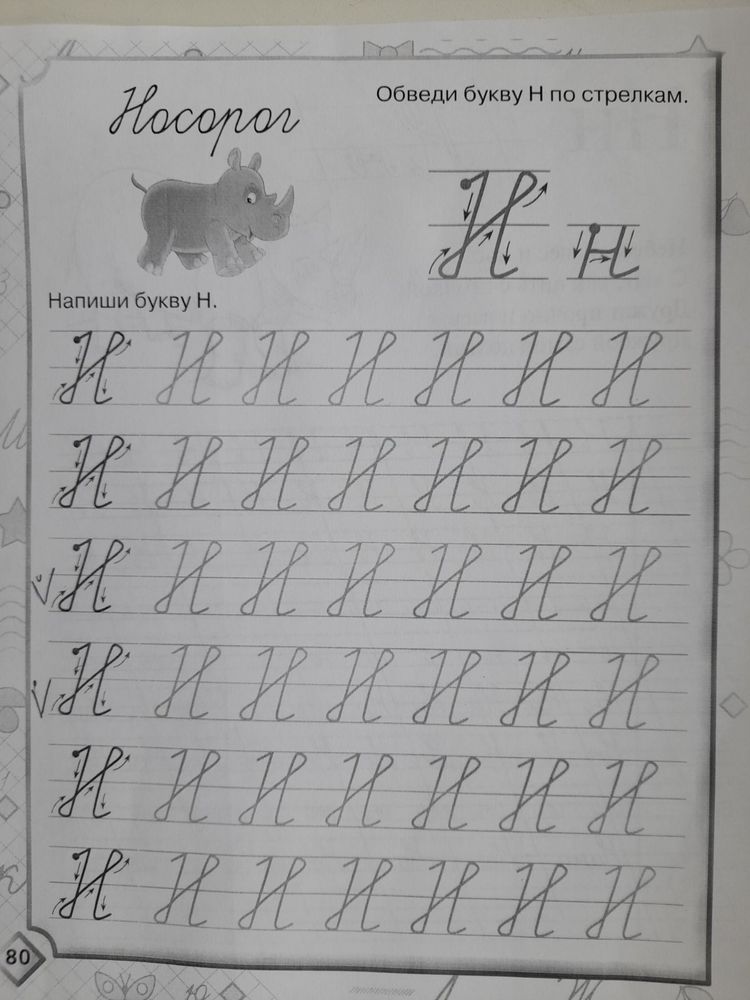 Носорог
Обведи букву Н по стрелкам.
Н н
Напиши букву Н.
Н Н Н Н Н Н Н
Н Н Н Н Н Н Н
Н Н Н Н Н Н Н
Н Н Н Н Н Н Н
Н Н Н Н Н Н Н
Н Н Н Н Н Н Н
80